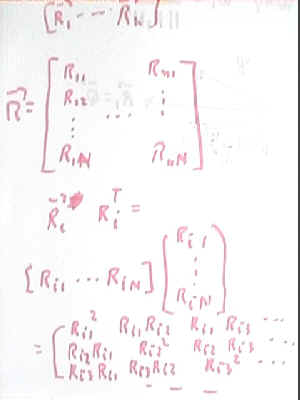 [R⃗₁ ⋯ R⃗ₙ]
R⃗ = [ R₁₁ Rₙ₁
R₁₂ ⋮
⋮ ⋯
R₁N RₙN ]
R⃗ᵢ Rᵢᵀ =
[Rᵢ₁ ⋯ RᵢN] ( Rᵢ₁
⋮
RᵢN )
= [ Rᵢ₁² Rᵢ₁Rᵢ₂ Rᵢ₁ Rᵢ₃ ⋯
Rᵢ₂Rᵢ₁ Rᵢ₂² Rᵢ₂ Rᵢ₃ ⋯
Rᵢ₃Rᵢ₁ Rᵢ₃Rᵢ₂ Rᵢ₃² ⋯